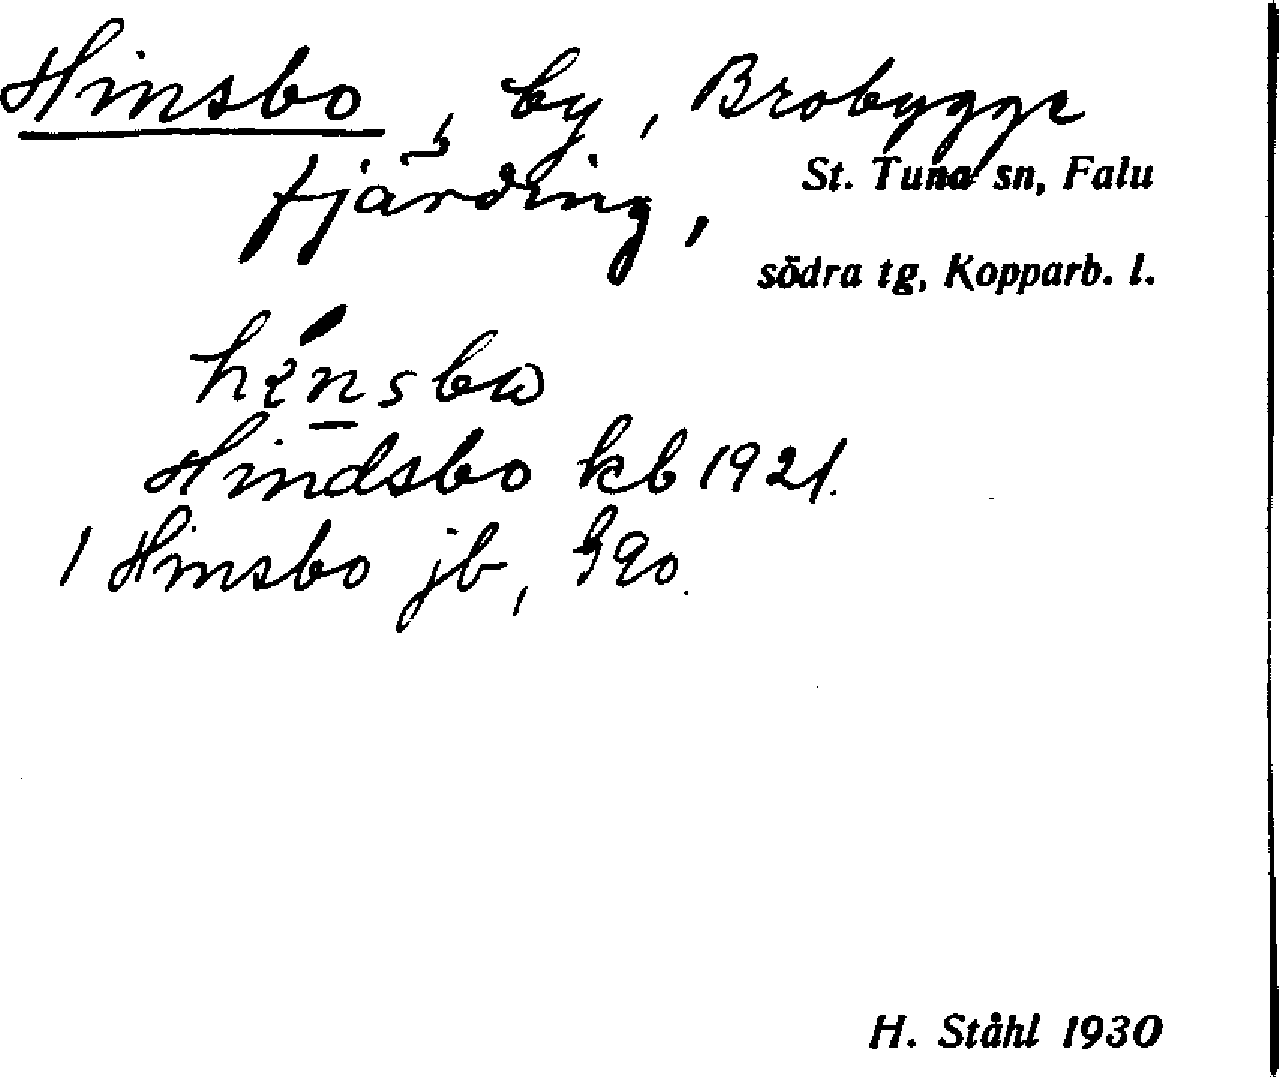 Hinsbo, by, Brobygge
fjärding, St. Tuna sn, Falu
södra tg, Kopparb. l.
hensbω
Hindsbo kb 1921.
1 Hinsbo jb,
H. Ståhl 1930